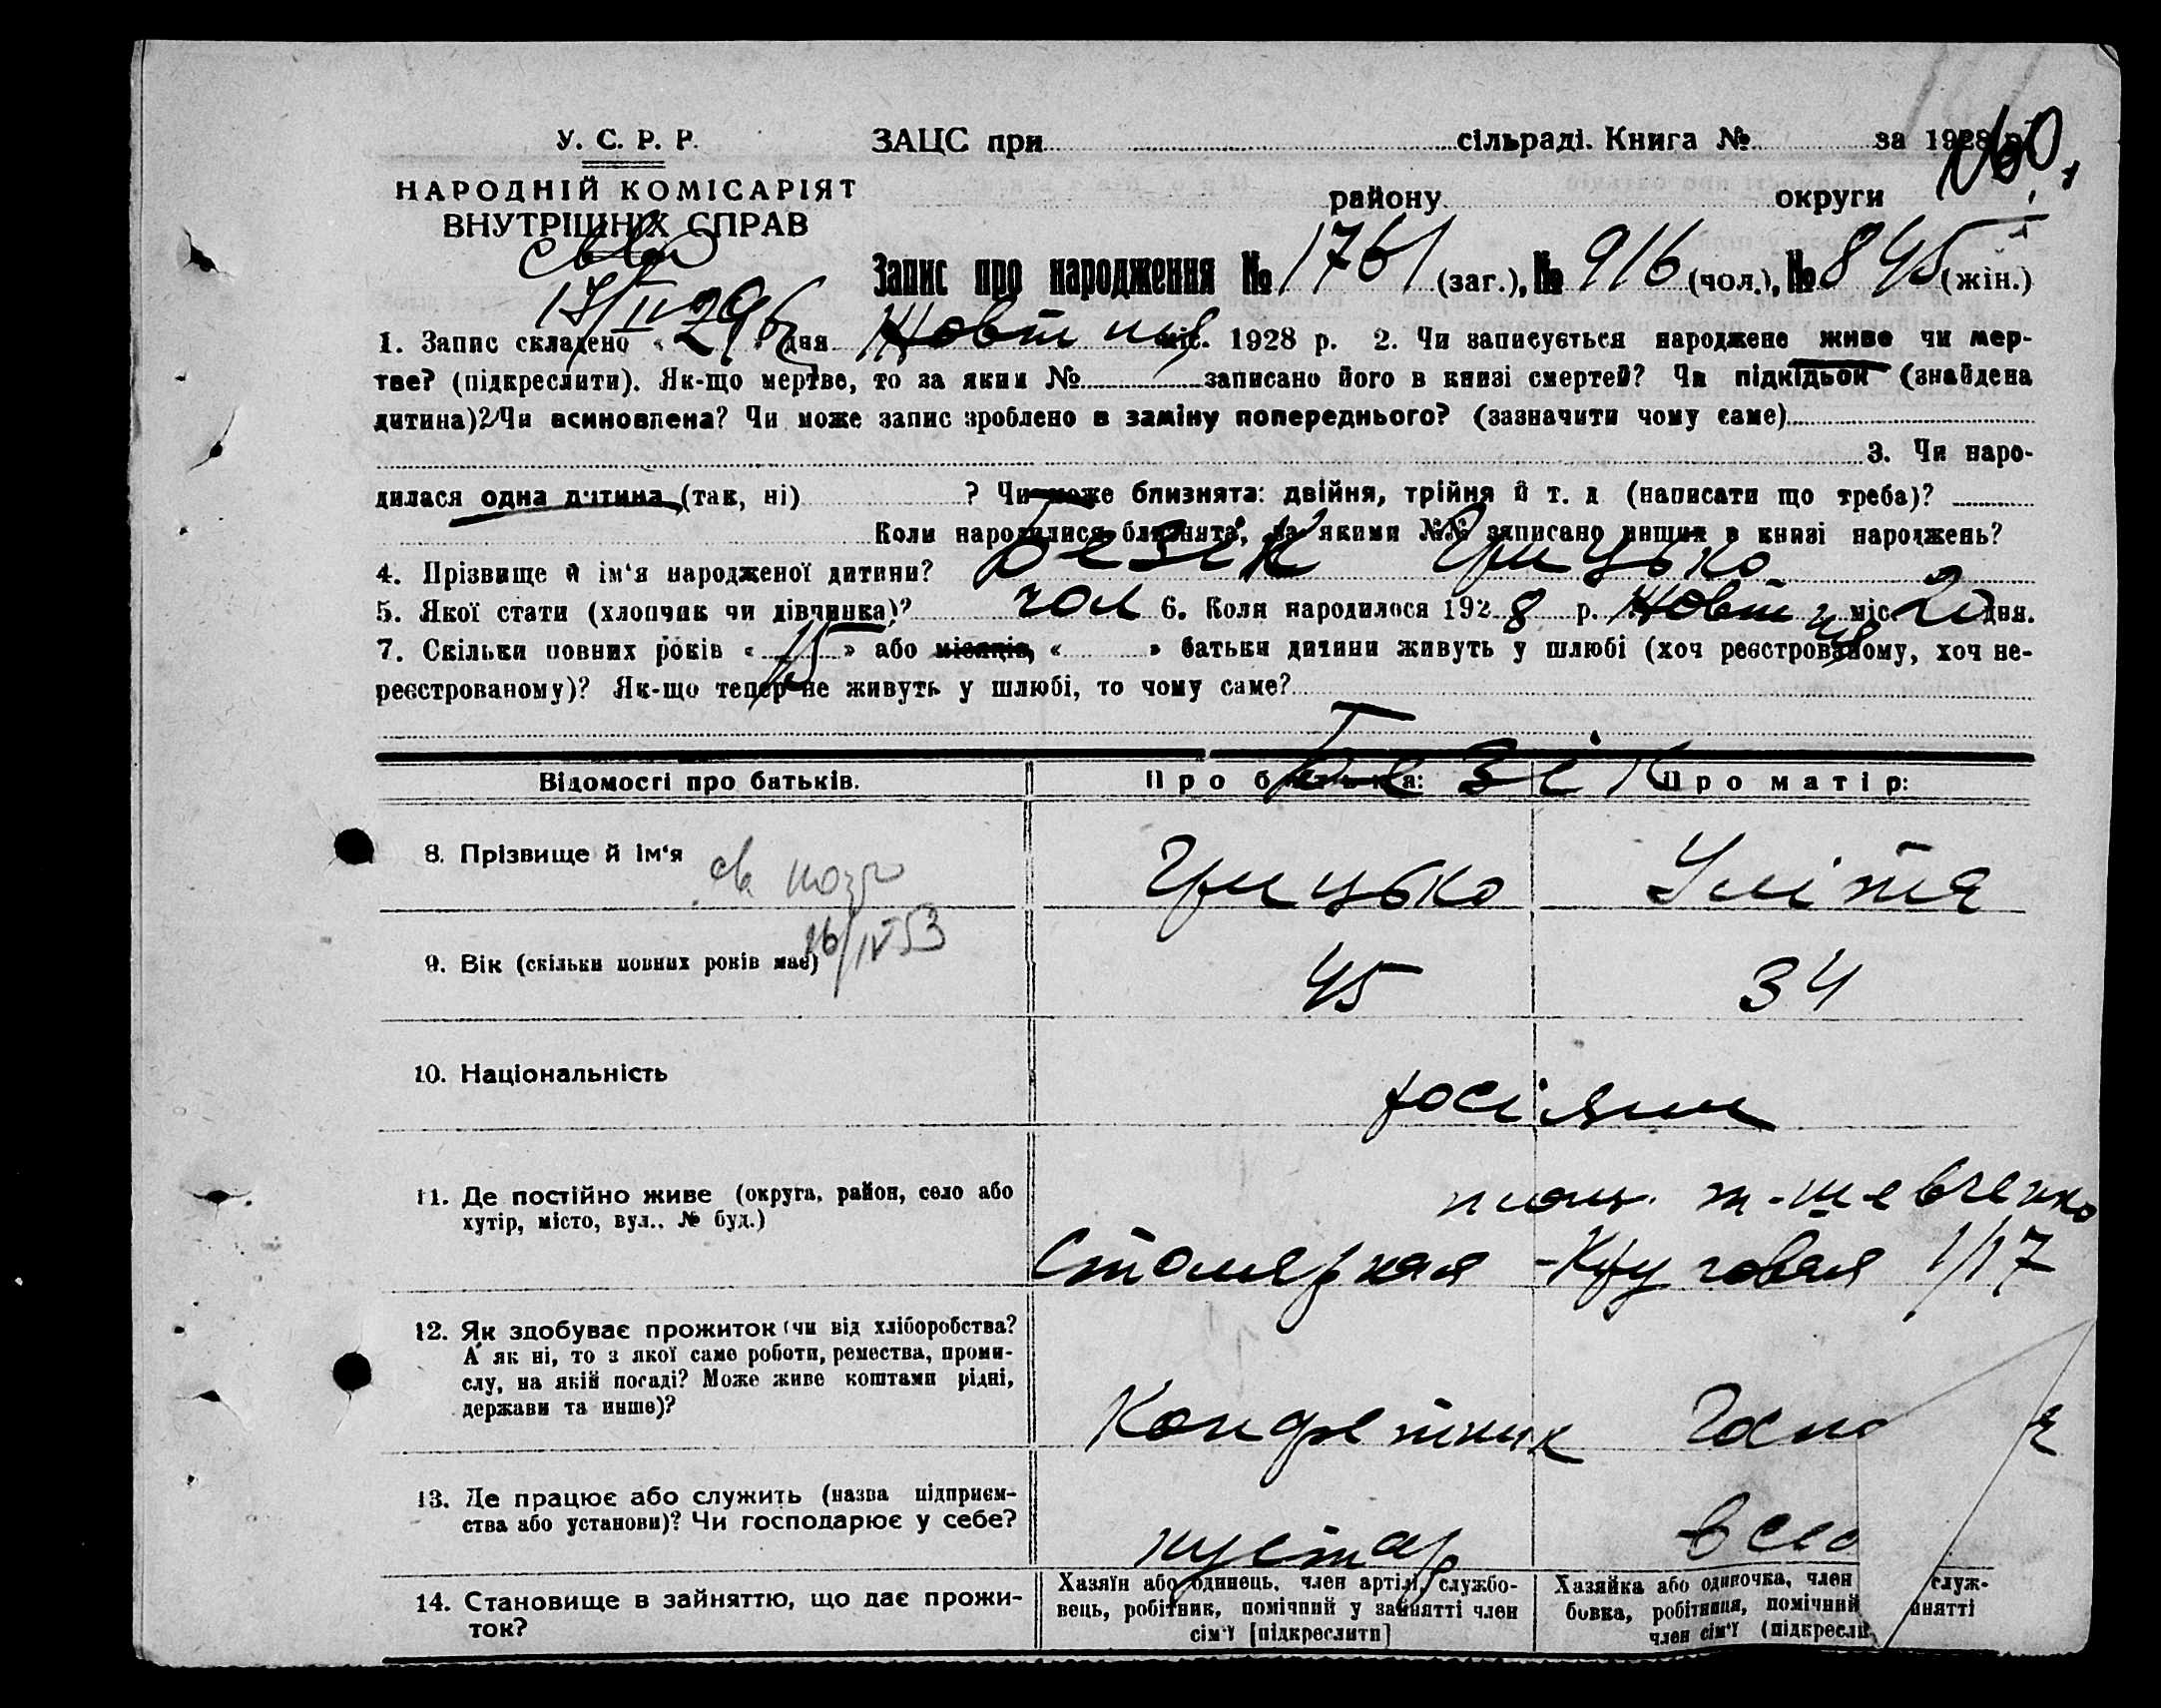 У. С. Р. Р.
ЗАЦС при сільраді. Книга № за 1928 р.
НАРОДНІЙ КОМІСАРІЯТ
ВНУТРІШНІХ СПРАВ
району округи
160
Запис про народження № 1761 (заг.), № 916 (чол.), № 845 (жін.)
17/II 29
1. Запис складено « 26 » дня Жовтня міс. 1928 р. 2. Чи записується народжене живе чи мер-
тве? (підкреслити). Як-що мертве, то за яким № записано його в книзі смертей? Чи підкідьок (знайдена
дитина)? Чи всиновлена? Чи може запис зроблено в заміну попереднього? (зазначити чому саме)
3. Чи наро-
дилася одна дитина (так, ні) ? Чи може близнята: двійня, трійня й т. д (написати що треба)?
Коли народилися близнята, за якими №№ записано инших в книзі народжень?
4. Прізвище й ім'я народженої дитини? Безік Грицько
5. Якої стати (хлопчик чи дівчинка)? чол 6. Коли народилося 1928 р. Жовтня міс. 20 дня.
7. Скільки повних років « 15 » або місяців, « » батьки дитини живуть у шлюбі (хоч реєстрованому, хоч не-
реєстрованому)? Як-що тепер не живуть у шлюбі, то чому саме?
Безік
Відомості про батьків. Про батька: Про матір:
8. Прізвище й ім'я Грицько Уліта
16/IV 53
9. Вік (скільки повних років має) 45 34
10. Національність росіяни
11. Де постійно живе (округа, район, село або
хутір, місто, вул., № буд.)
Шевченко
Столярная - Круговая 1/17
12. Як здобуває прожиток (чи від хліборобства?
А як ні, то з якої саме роботи, ремества, проми-
слу, на якій посаді? Може живе коштами рідні,
держави та инше)?
Конфетник
13. Де працює або служить (назва підприєм-
ства або установи)? Чи господарює у себе?
кустар
14. Становище в зайняттю, що дає прожи-
ток?
Хазяїн або одинець, член артілі, службо-
вець, робітник, помічний у зайнятті член
сім'ї [підкреслити]
Хазяйка або одиночка, член служ-
бовка, робітниця, помічний йнятті
член сім'ї (підкресли